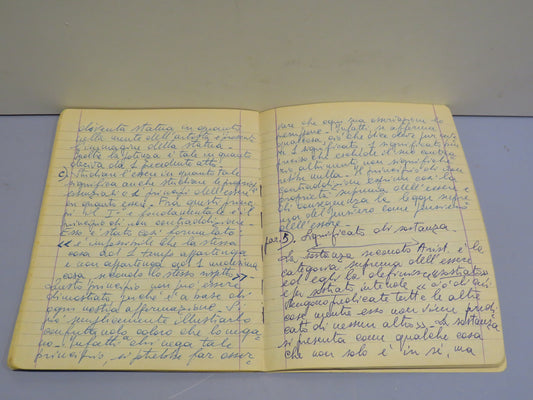 diventa statua in quanto
nella mente dell'artista è presente
l'immagine della statua.
Quindi la potenza è tale in quanto
deriva da 1 precedente atto.
c) Studiare l'essere in quanto tale
significa anche studiare le proprietà
essenziali e i principi dell'essere
in quanto esso. Fra questi principi
il 1° e fondamentale è il
principio di non contraddizione.
Esso è stato così formulato
<< è impossibile che la stessa
cosa ad 1 tempo appartenga
e non appartenga ad 1 medesima
cosa, secondo lo stesso rispetto >>
Questo principio non può essere
dimostrato, perché è a base di
ogni nostra affermazione. Si
può semplicemente illustrarlo
confutando coloro che lo nega-
no. Infatti a chi nega tale
principio, si potrebbe far osser-
vare che ogni sua asserzione lo
presuppone. Infatti se afferma
qualcosa, ciò che dice deve pur avere
1 significato, 1 significato pre-
ciso che escluda il suo contra-
rio altrimenti non significhe-
rebbe nulla. Il principio di non
contraddizione esprime così la
proprietà suprema dell'essere e
di conseguenza la legge supre-
ma del pensiero come pensiero
dell'essere.
par. 5) Significato di sostanza.
La sostanza secondo Arist. è la
categoria suprema dell'essere
ed egli la definisce
e per sostrato intende << ciò di cui
vengono predicate tutte le altre
cose mentre esso non viene predi-
cato di nessun altro >>. La sostanza
si presenta come qualche cosa
che non solo è in sé, ma